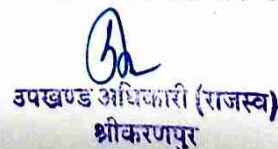 उपखण्ड अधिकारी (राजस्व)
श्रीकरणपुर